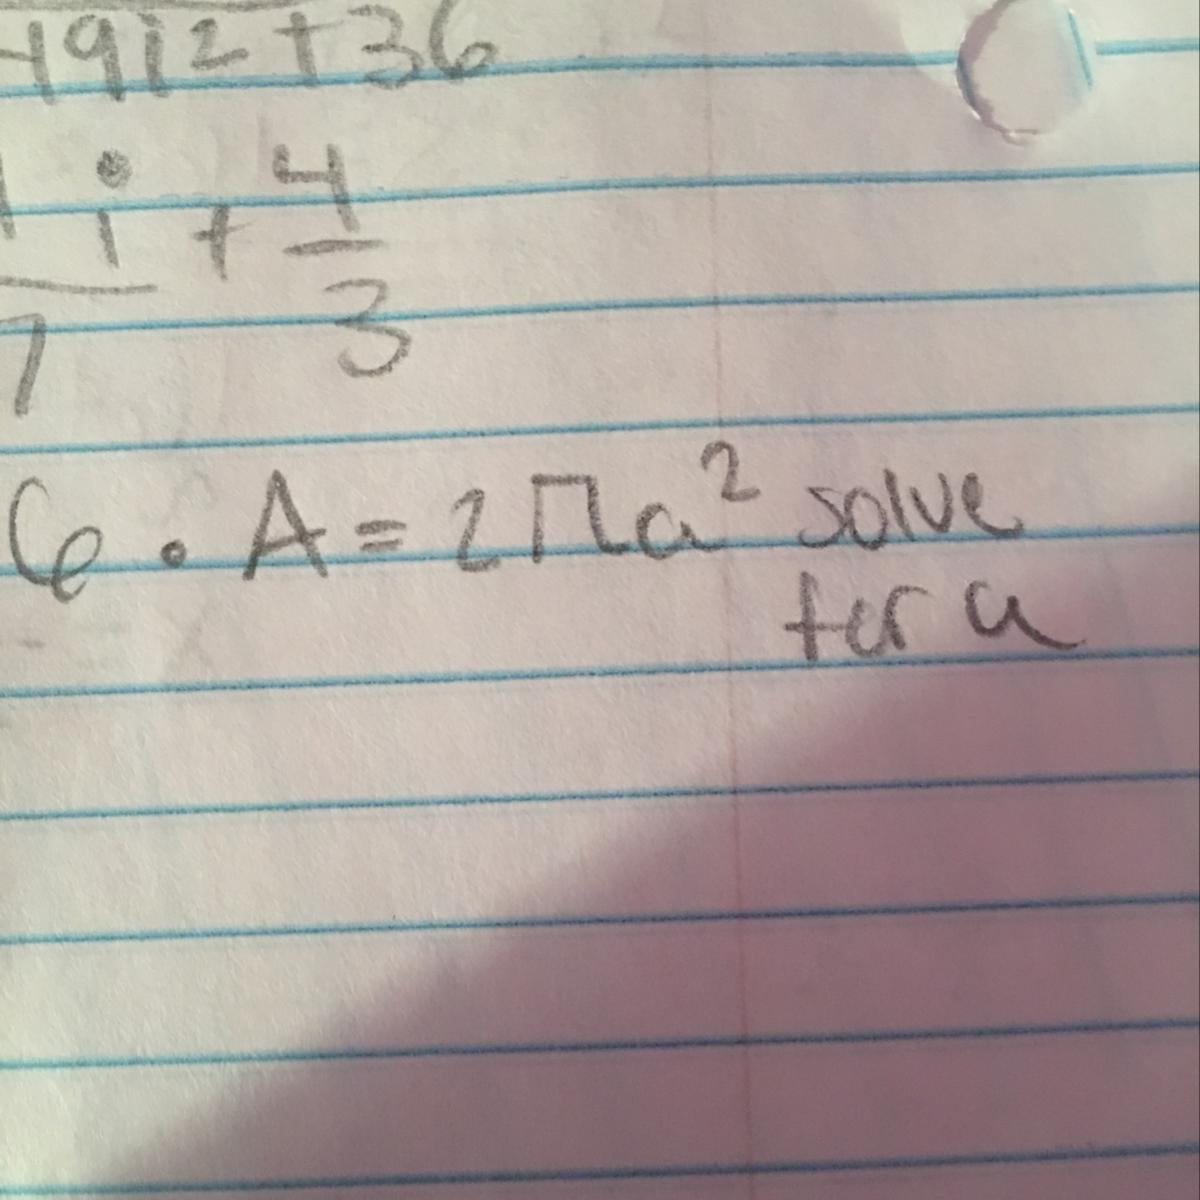 49i2+36
i + 4
7 3
6. A = 2πa² solve
for a